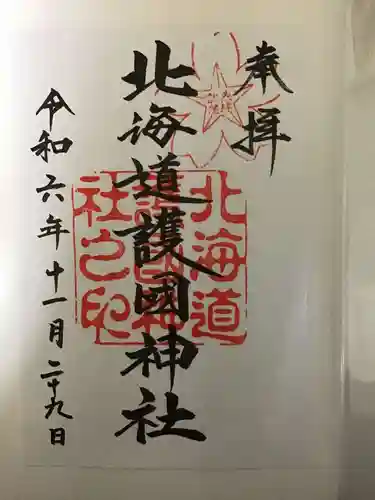 奉拝
北海道護國神社
令和六年十一月二十九日
北海道
護國神
社之印